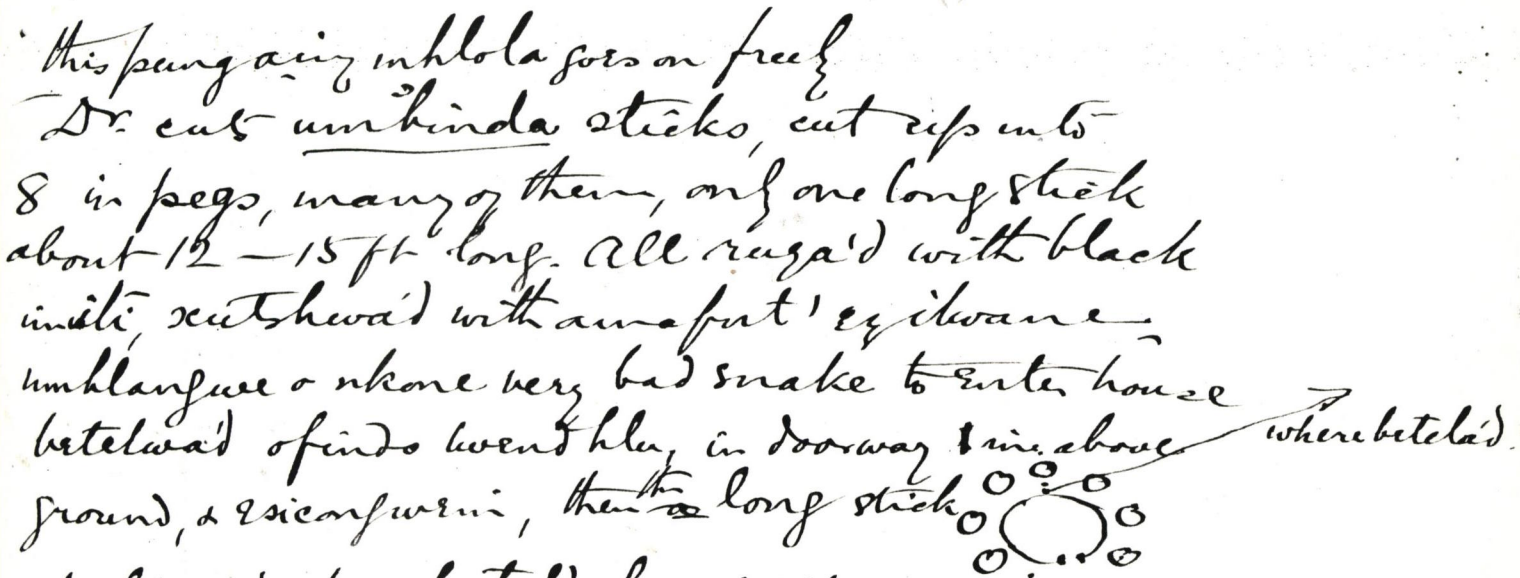 this pungaing inhlola goes on freely
Dr. cuts umbinda sticks, cut up into
8 in pegs, many of them, only one long stick
about 12 – 15 ft long. All ruga'd with black
imiti, xutshwa'd with amafut' ezikwane
umhlangwe & nkone very bad snake to enter house
betelwa'd ofindo kwendhlu, in doorway 1 in. above where betela'd.
ground, & esicongweni, then the long stick